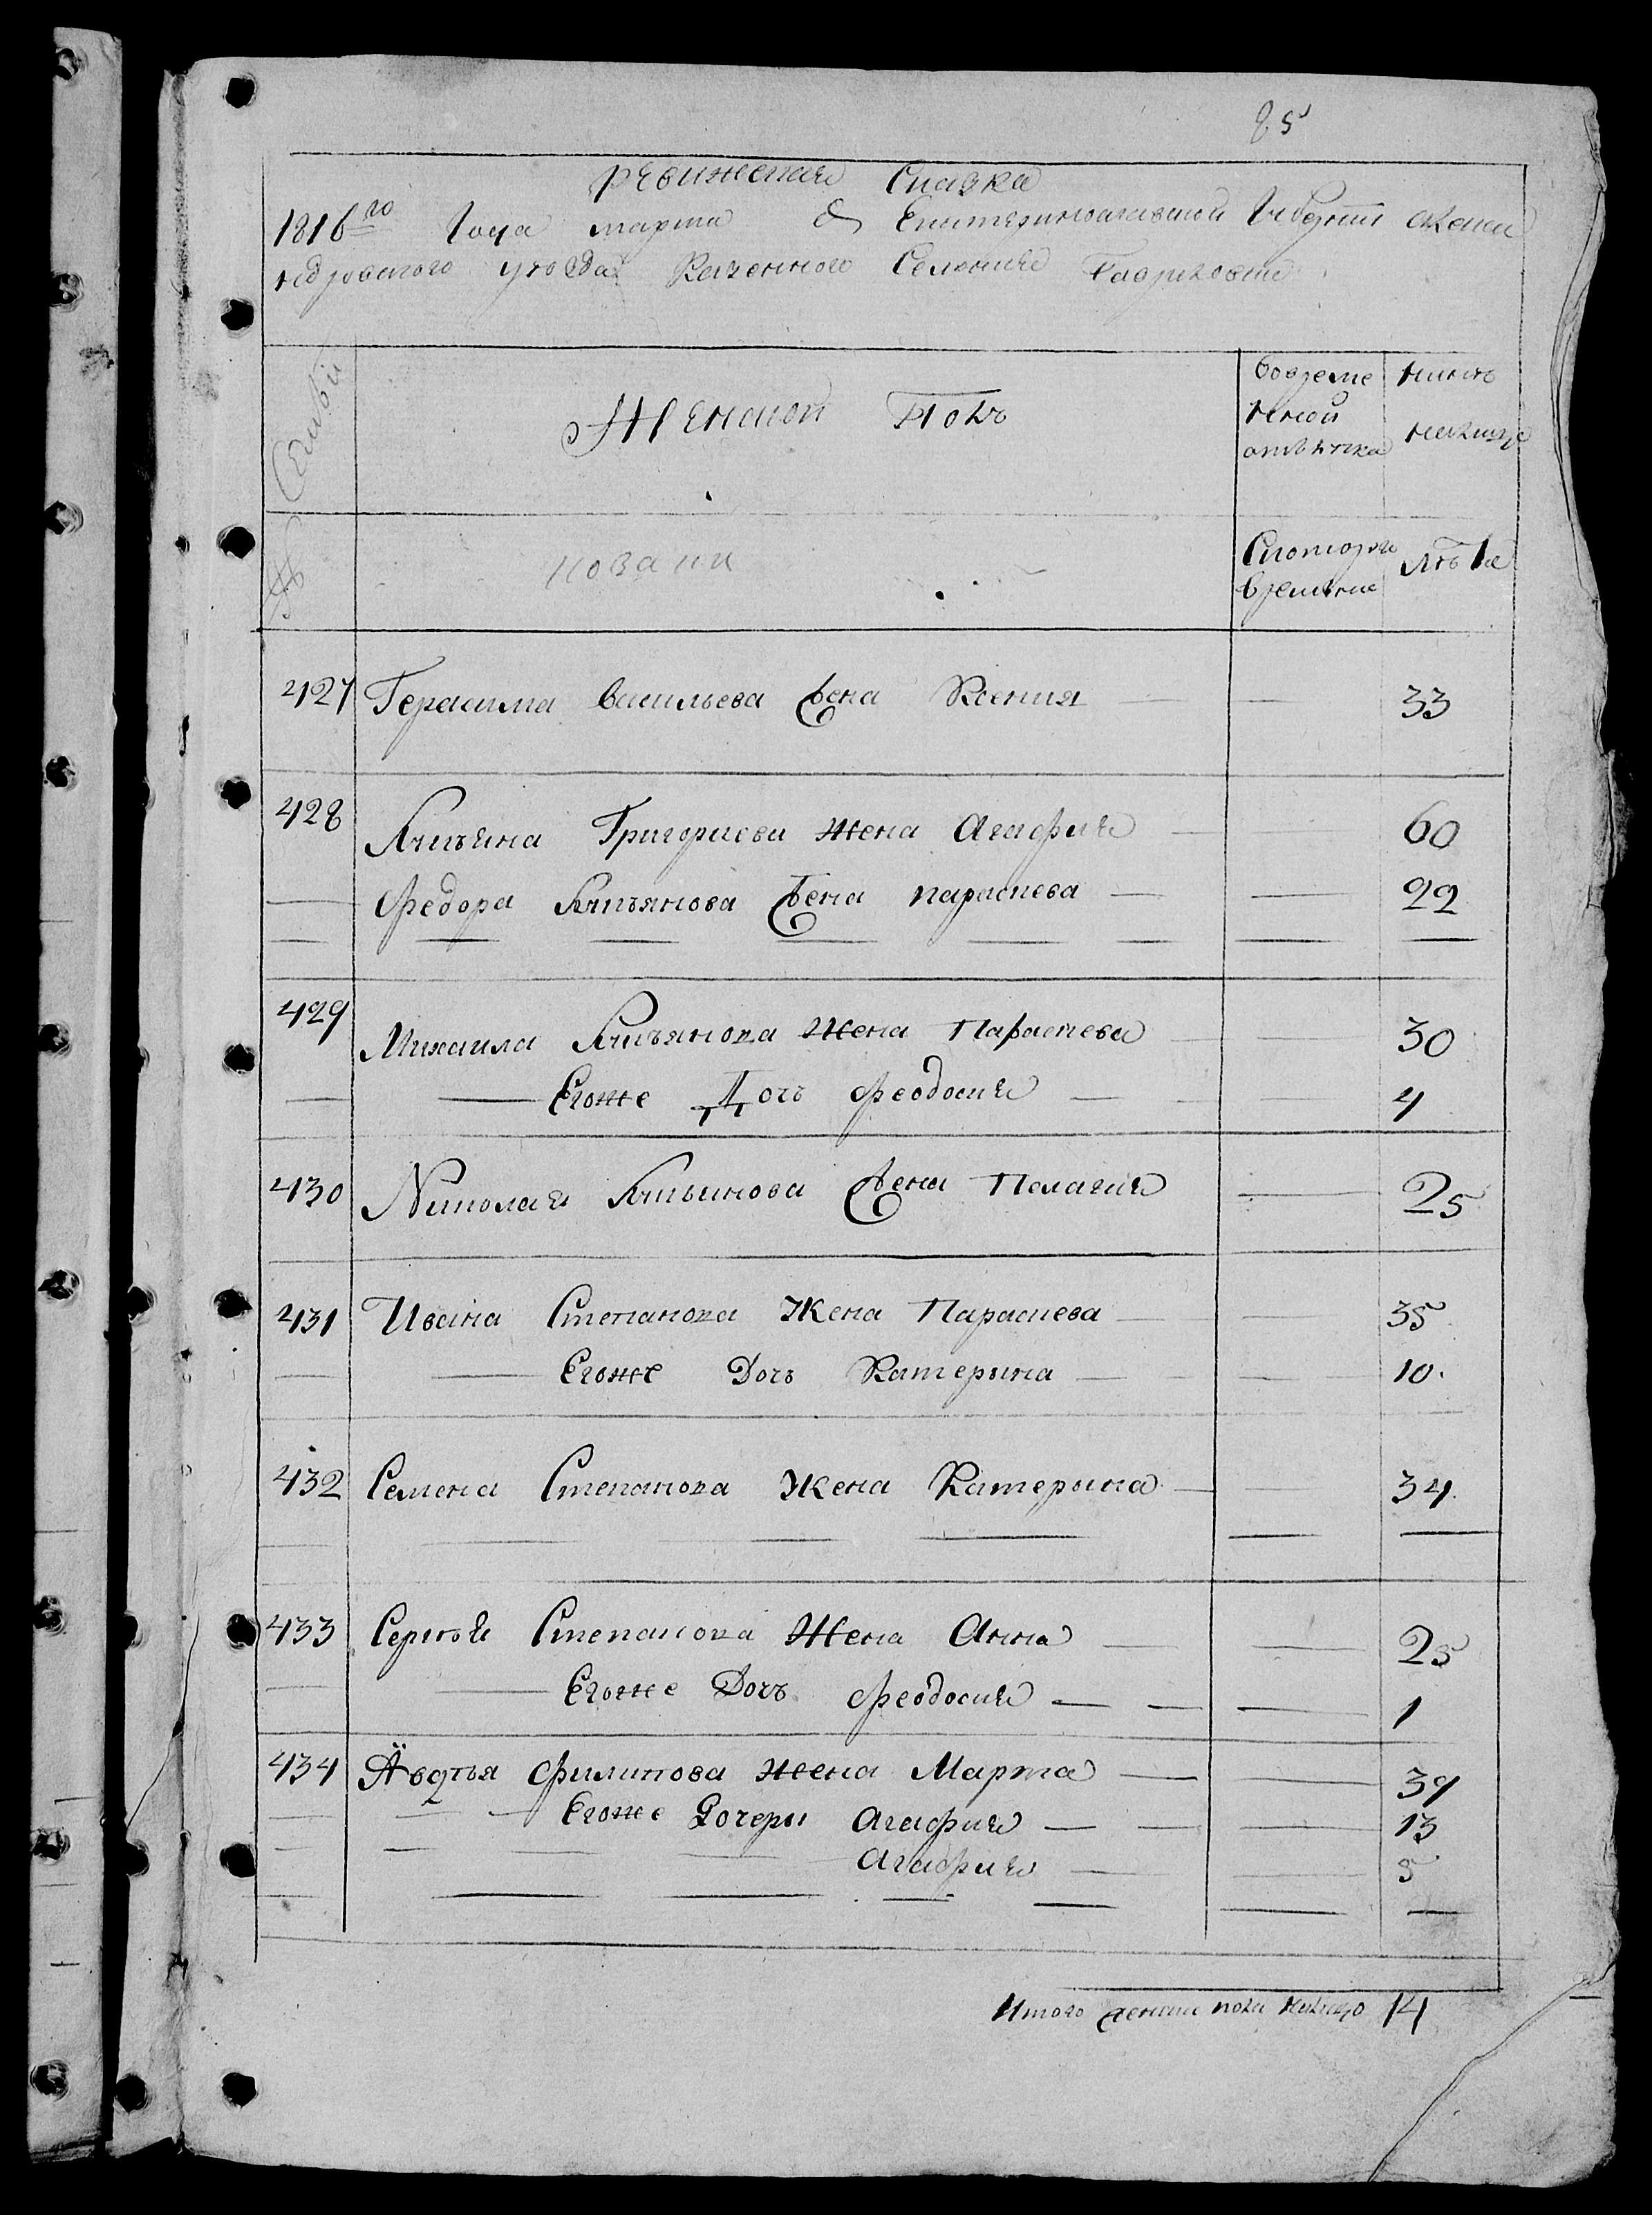 85
ревижская Сказка
1816го Года марта Екатеринославской Губернии Алексан
ндровского уезда Казенного Селения Гавриловки
№ Семьи
Женской Полъ
Вовреме
нной
отлучки
ныне
налицо
Скоторого
времени
лѣта
427 Герасима Васильева жена Ксения — — 33
428 Лукьяна Григориева жена Агафия — 60
— Федора Лукьянова жена параскева — — 22
429 Михаила Лукьянова жена Параскева — — 30
— — Егоже Дочь Феодосия — 4
430 Николая Лукьянова жена Пелагия — 25
431 Ивана Степанова Жена Параскева — — 35
— — Егоже Дочь Катерина — — 10.
432 Семена Степанова Жена Катерина — — 34
433 Сергѣя Степанова Жена Анна — — 25
— — Егоже Дочъ Феодосия — — — 1
434 Авдѣя Филипова жена Марфа — — 39
— — Егоже Дочери Агафия — — — 13
— — Агафия — — 5
Итого женска пола налицо 14